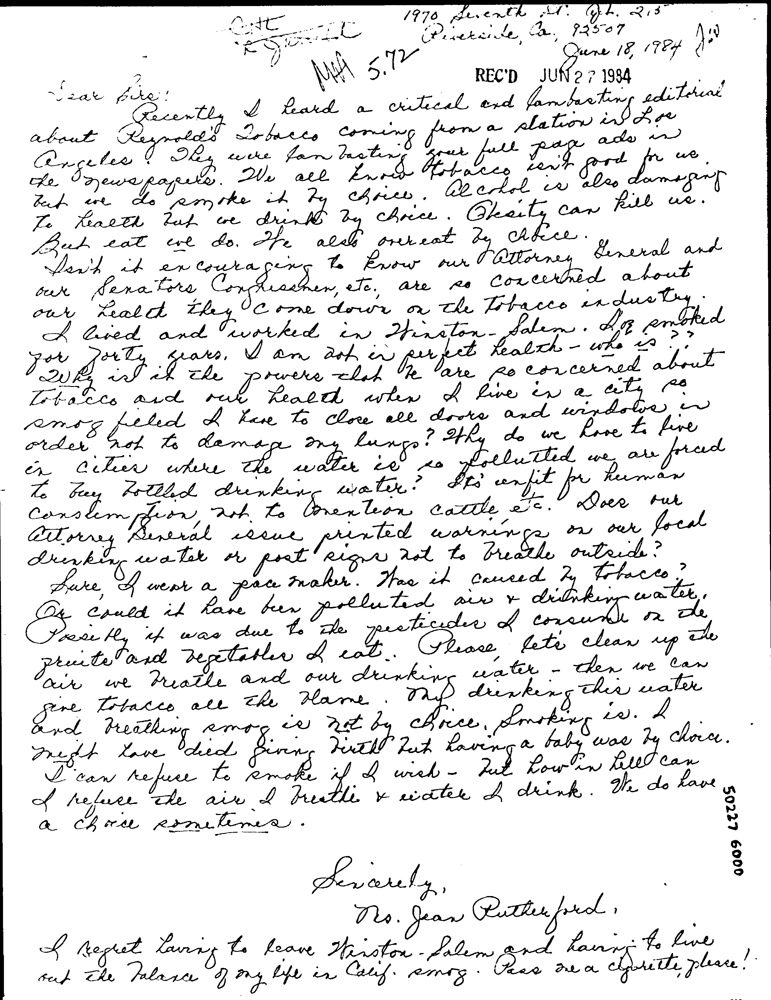 1970 Seventh St. Apt. 215
Riverside, Ca. 92507
June 18, 1984
5.72
REC'D JUN 27 1984
Dear Sirs:
Recently I heard a critical and lambasting editorial
about Reynolds Tobacco coming from a station in Los
Angeles. They were lambasting your full page ads in
the newspapers. We all know tobacco isn't good for us
but we do smoke it by choice. Alcohol is also damaging
to health but we drink by choice. Obesity can kill us.
But eat we do. We also overeat by choice.
Isn't it encouraging to know our Attorney General and
our Senators Congressmen, etc. are so concerned about
our health they come down on the tobacco industry.
I lived and worked in Winston-Salem. I've smoked
for forty years. I am not in perfect health - who is??
Why is it the powers that be are so concerned about
tobacco and our health when I live in a city so
smog filled I have to close all doors and windows in
order not to damage my lungs? Why do we have to live
in cities where the water is so pollutted we are forced
to buy bottled drinking water? It's unfit for human
consumption, not to mention cattle, etc. Does our
Attorney General issue printed warnings on our local
drinking water or post signs not to breathe outside?
Sure, I wear a pace maker. Was it caused by tobacco?
Or could it have been polluted air & drinking water.
Possibly it was due to the pesticides I consume on the
fruits and vegetables I eat. Please, let's clean up the
air we breathe and our drinking water - then we can
give tobacco all the blame. My drinking this water
and breathing smog is not by choice. Smoking is. I
might have died giving birth but having a baby was by choice.
I can refuse to smoke if I wish - but how in hell can
I refuse the air I breathe & water I drink. We do have
a choice sometimes.
50227 6000
Sincerely,
Ms. Jean Rutherford.
I regret having to leave Winston-Salem and having to live
out the balance of my life in Calif. smog. Pass me a cigarette, please!